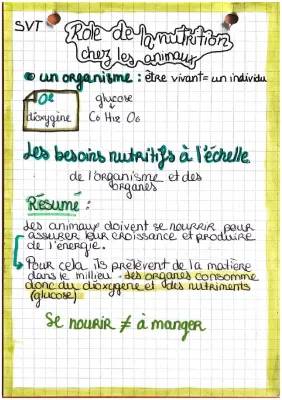 SVT
Rôle de la nutrition
chez les animaux
un organisme : être vivant = un individu
O² glucose
dioxygène C6 H12 O6
Les besoins nutritifs à l'échelle
de l'organisme et des
organes
Résumé :
Les animaux doivent se nourrir pour
assurer leur croissance et produire
de l'énergie.
Pour cela ils prélèvent de la matière
dans le millieu. des organes consomme
donc du dioxygène et des nutriments
(glucose)
Se nourir ≠ à manger